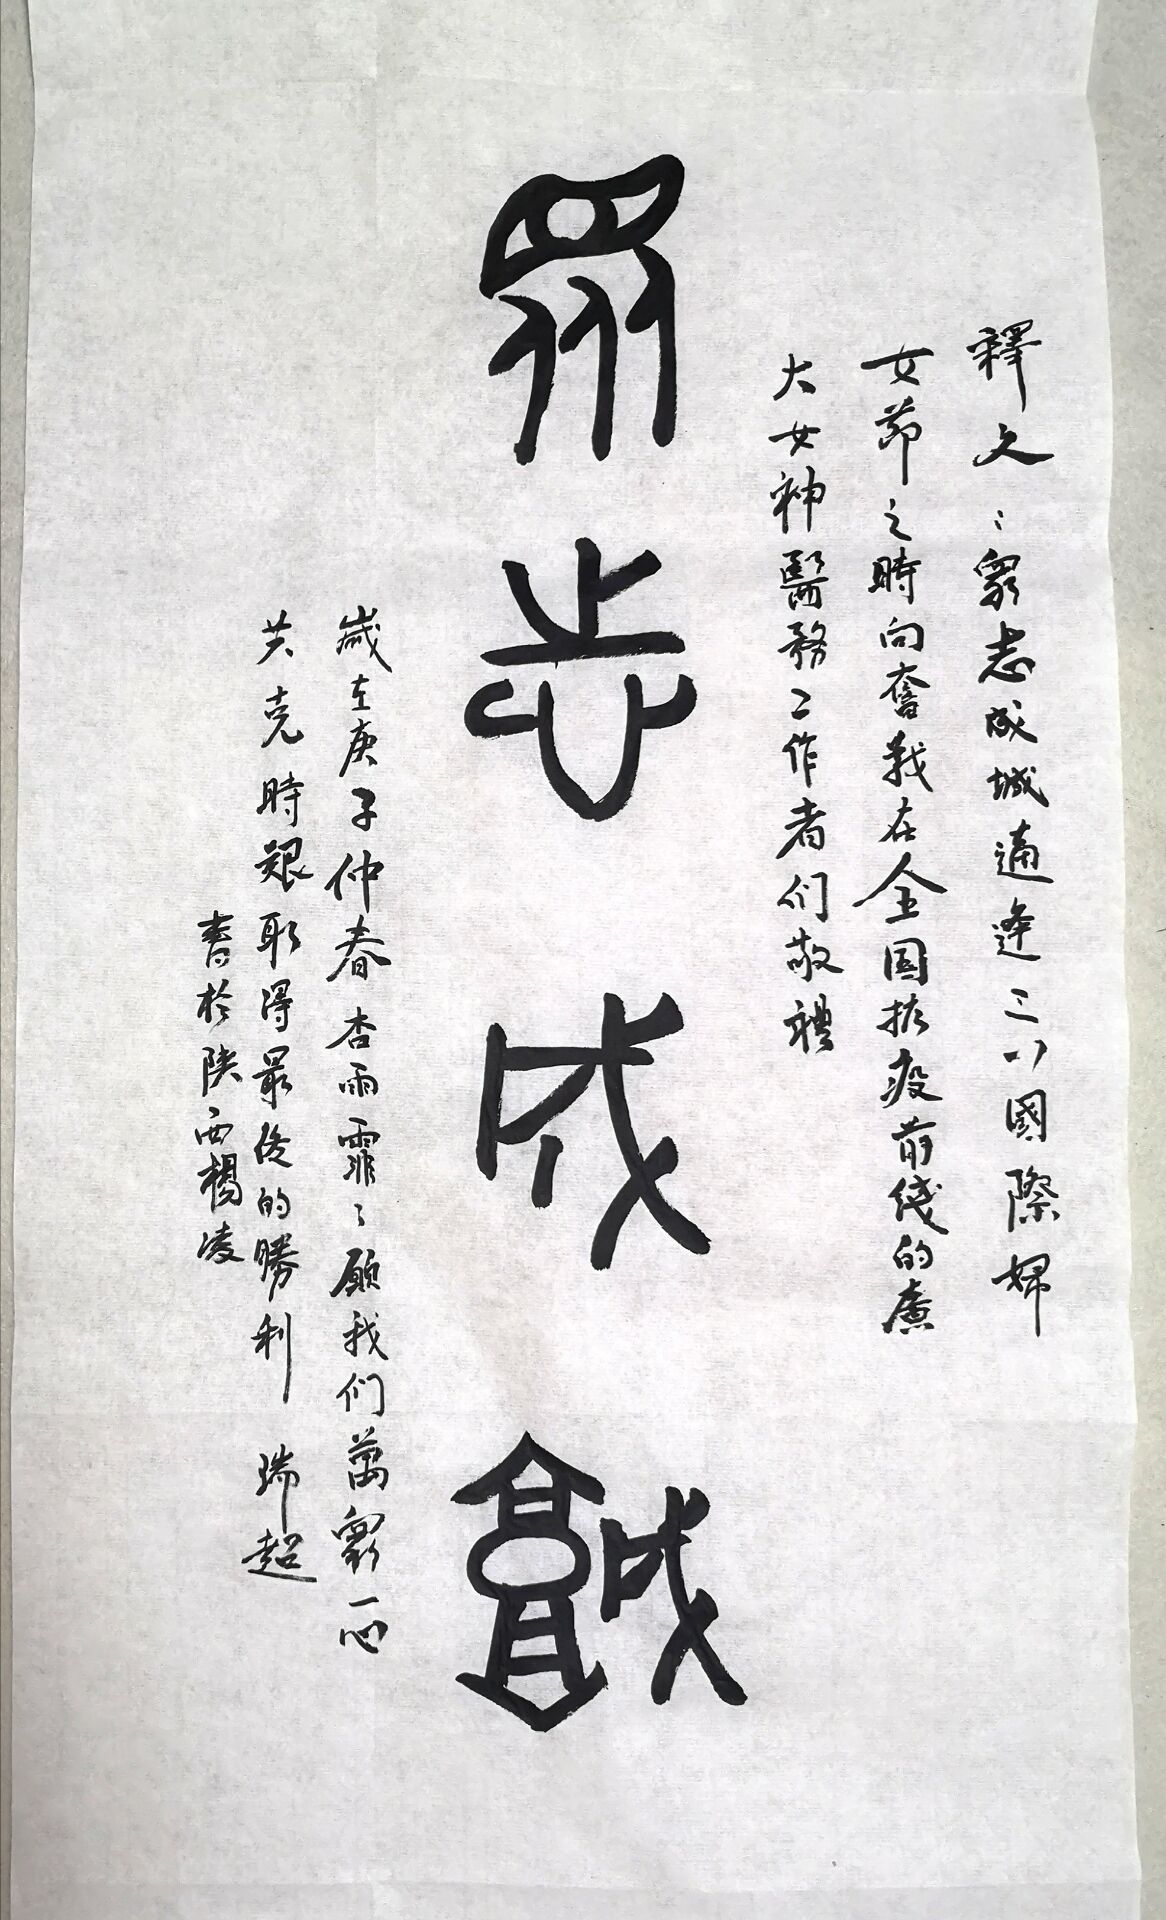 釋文：眾志成城適逢三八國際婦
女節之時向奮戰在全国抗疫前线的廣
大女神醫務工作者们敬禮
眾志成城
歲在庚子仲春杏雨霏〻願我们萬眾一心
共克時艱取得最後的勝利 瑞超
書於陕西楊凌